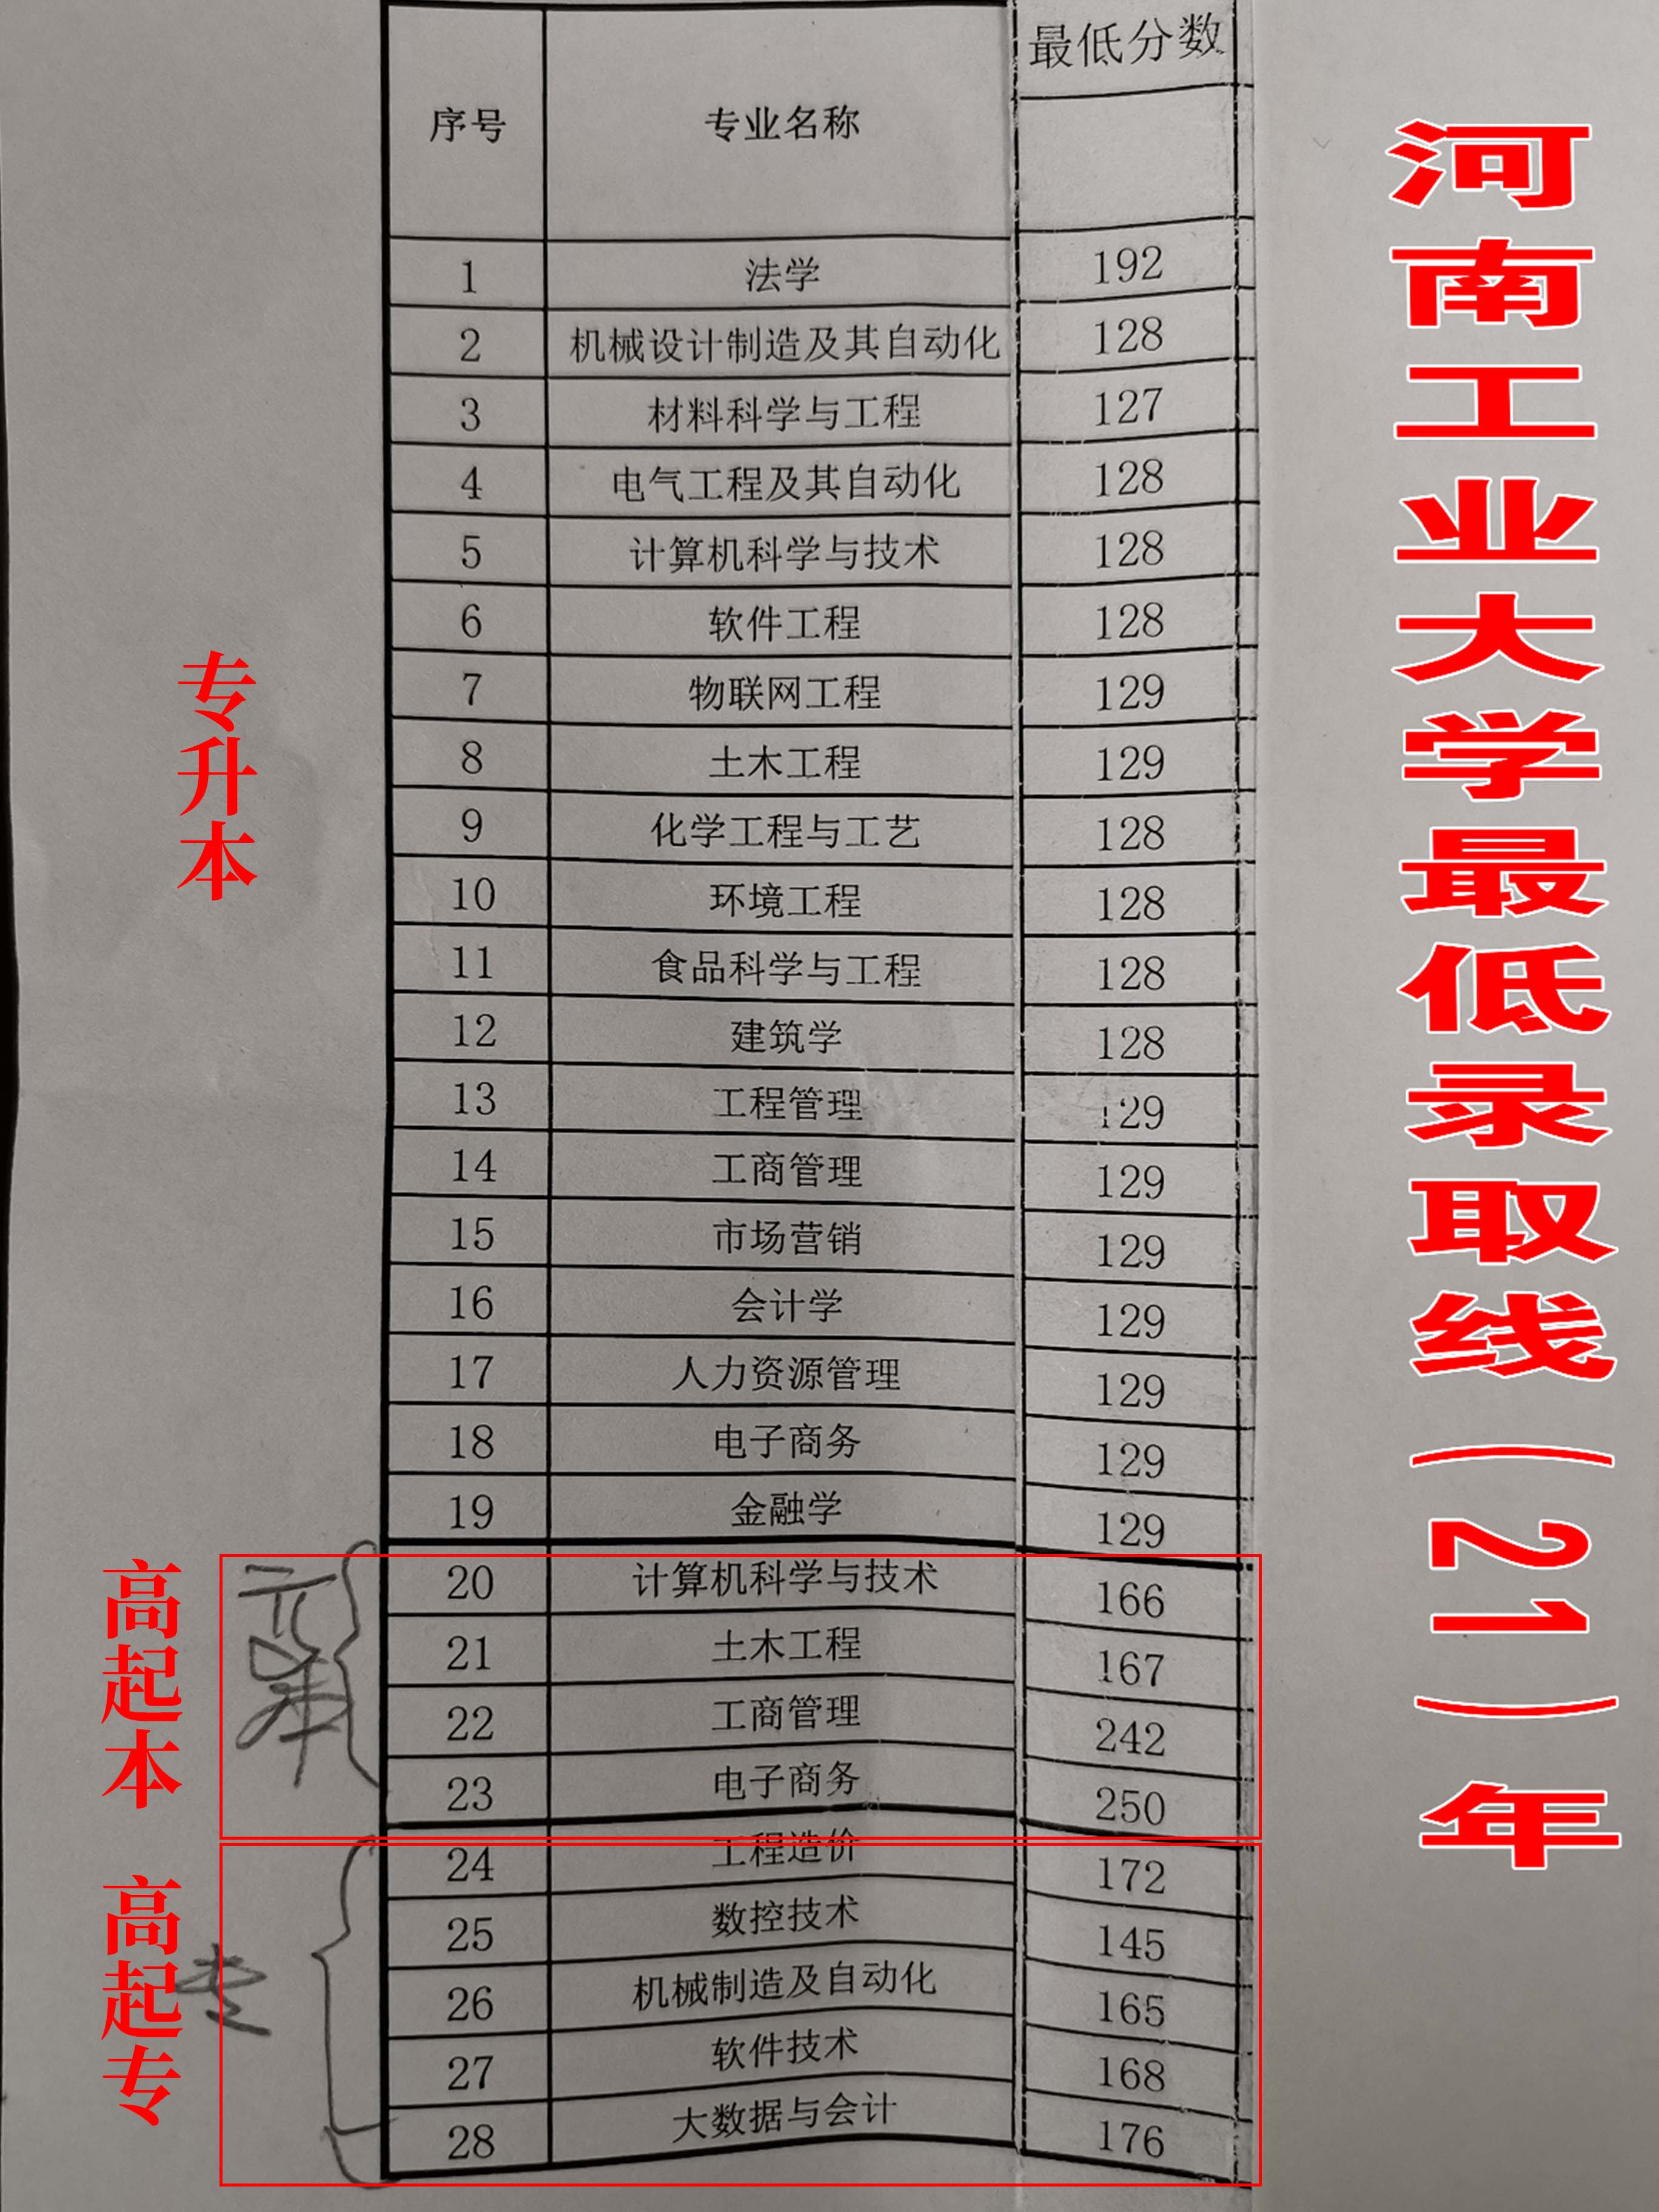 序号 专业名称 最低分数
1 法学 192
2 机械设计制造及其自动化 128
3 材料科学与工程 127
4 电气工程及其自动化 128
5 计算机科学与技术 128
6 软件工程 128
7 物联网工程 129
8 土木工程 129
9 化学工程与工艺 128
10 环境工程 128
11 食品科学与工程 128
12 建筑学 128
13 工程管理 129
14 工商管理 129
15 市场营销 129
16 会计学 129
17 人力资源管理 129
18 电子商务 129
19 金融学 129
20 计算机科学与技术 166
21 土木工程 167
22 工商管理 242
23 电子商务 250
24 工程造价 172
25 数控技术 145
26 机械制造及自动化 165
27 软件技术 168
28 大数据与会计 176
专升本
高起本
高起专
专
河南工业大学最低录取线（21）年